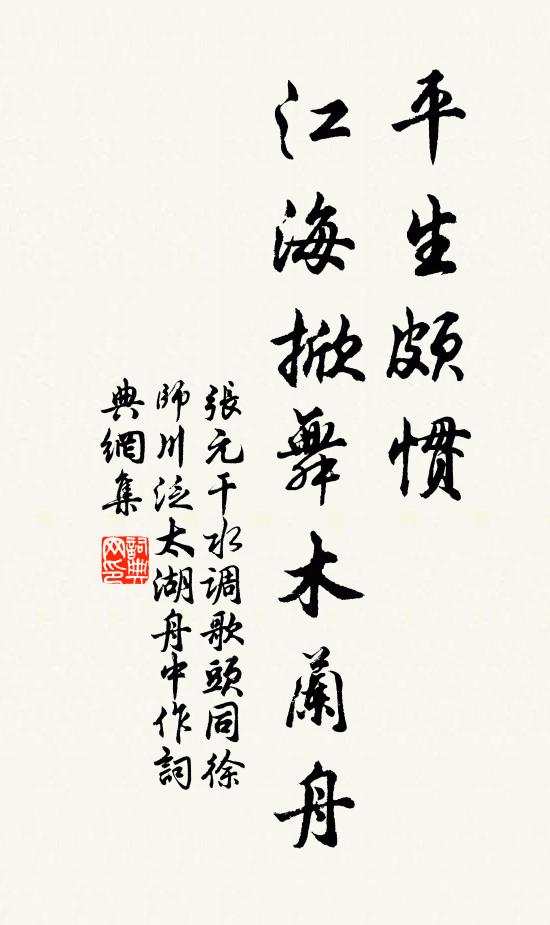 平生頗慣
江海掀舞木蘭舟
張元干水調歌頭同徐
師川泛太湖舟中作詞
典網集
詞典網印